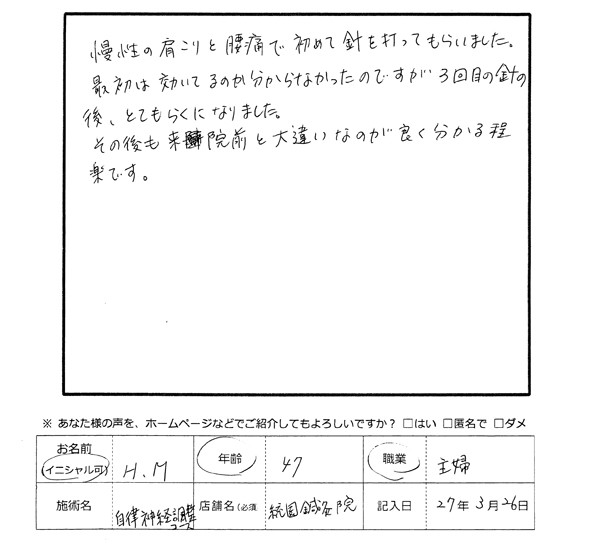 慢性の肩こりと腰痛で初めて針を打ってもらいました。
最初は効いてるのか分からなかったのですが3回目の針の
後、とてもらくになりました。
その後も来院前と大違いなのが良く分かる程
楽です。
※ あなた様の声を、ホームページなどでご紹介してもよろしいですか？ □はい □匿名で □ダメ
お名前 (イニシャル可) H.M 年齢 47 職業 主婦
施術名 自律神経調整 店舗名(必須 統園鍼灸院 記入日 27年3月26日